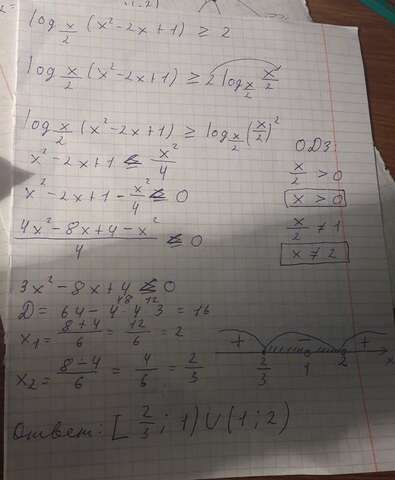 log_{x/2} (x² - 2x + 1) ≥ 2
log_{x/2} (x² - 2x + 1) ≥ 2 log_{x/2} x/2
log_{x/2} (x² - 2x + 1) ≥ log_{x/2} (x/2)²
x² - 2x + 1 ≤ x²/4
x² - 2x + 1 - x²/4 ≤ 0
(4x² - 8x + 4 - x²)/4 ≤ 0
3x² - 8x + 4 ≤ 0
D = 64 - 4 · 4 · 3 = 16
48 12
x₁ = (8 + 4)/6 = 12/6 = 2
x₂ = (8 - 4)/6 = 4/6 = 2/3
ОДЗ:
x/2 > 0
x > 0
x/2 ≠ 1
x ≠ 2
+ - +
2/3 1 2 x
Ответ: [2/3; 1) ∪ (1; 2)